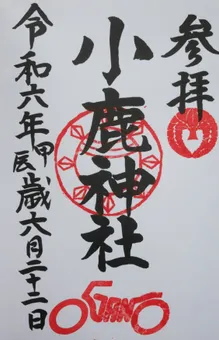 参拝
小鹿神社
令和六年甲辰歳六月二十二日
OGANO